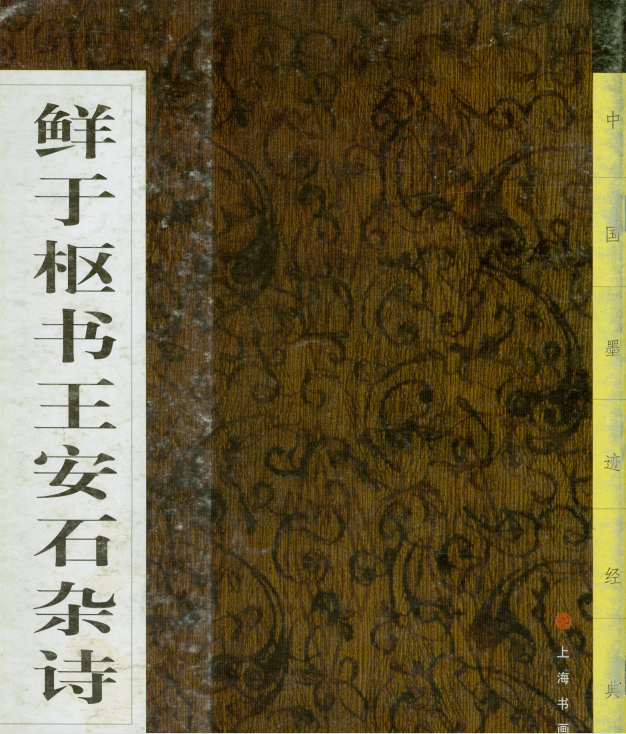 鲜于枢书王安石杂诗
中国墨迹经典
上海书画